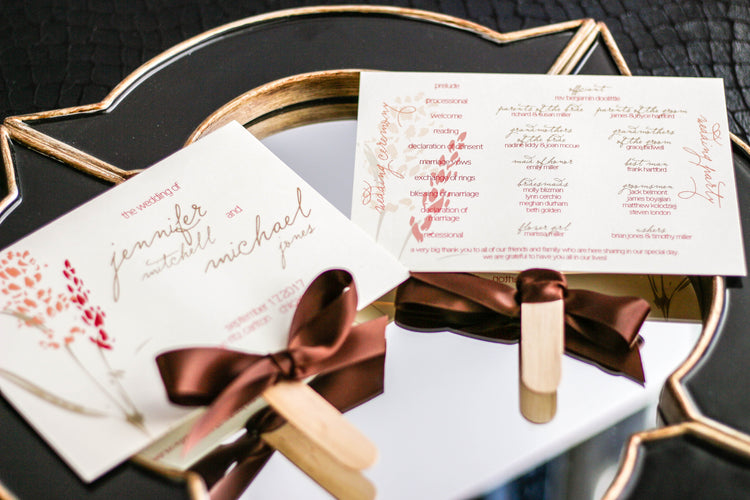 the wedding of
jennifer
mitchell
and
michael
jones
september 17 2017
wedding ceremony
prelude
processional
welcome
reading
declaration of consent
marriage vows
exchange of rings
blessing of marriage
declaration of
marriage
recessional
officiant
rev. benjamin doolittle
parents of the bride
richard & susan miller
grandmothers
of the bride
nadine liddy & joan mccue
maid of honor
emily miller
bridesmaids
molly blizman
lynn cerchio
meghan durham
beth golden
flower girl
marissa miller
parents of the groom
james & joyce hartford
grandmothers
of the groom
grace bidwell
best man
frank hartford
groomsmen
jack belmont
james boyajian
matthew kolodziej
steven london
ushers
brian jones & timothy miller
wedding party
a very big thank you to all of our friends and family who are here sharing in our special day.
we are grateful to have all in our lives!